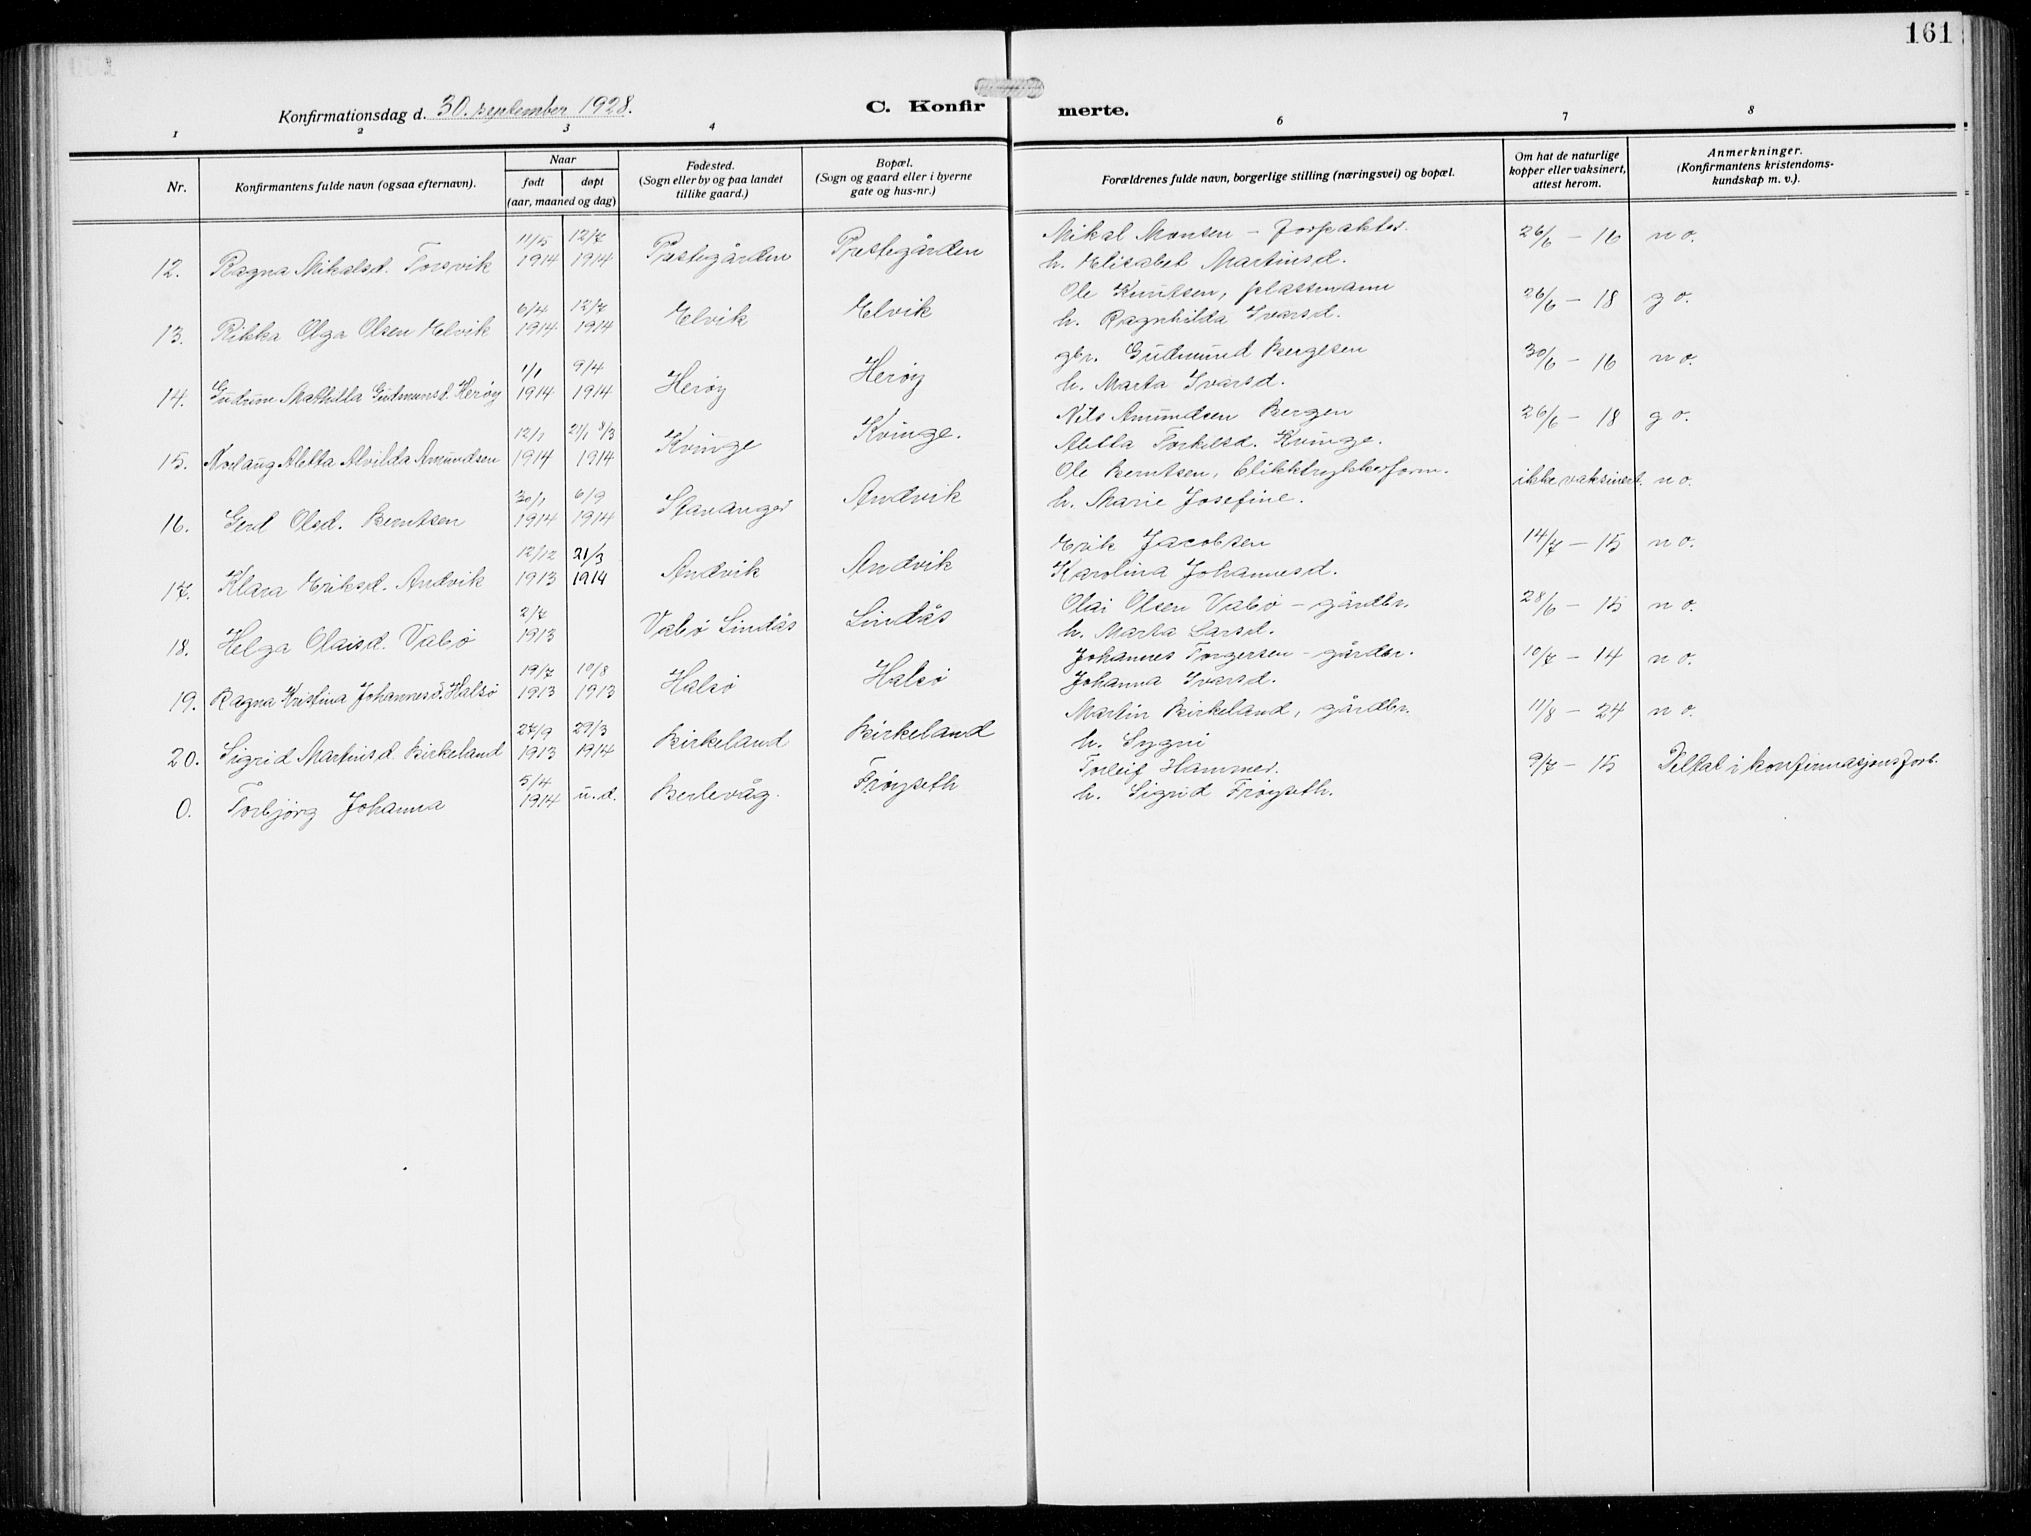 161
Konfirmationsdag d. 30. september 1928.
C. Konfirmerte.
1 2 3 4 6 7 8
Nr.
Konfirmantens fulde navn (ogsaa efternavn).
Naar
født
døpt
(aar, maaned og dag)
Fødested.
(Sogn eller by og paa landet
tillike gaard.)
Bopæl.
(Sogn og gaard eller i byerne
gate og hus-nr.)
Forældrenes fulde navn, borgerlige stilling (næringsvei) og bopæl.
Om hat de naturlige
kopper eller vaksinert,
attest herom.
Anmerkninger.
(Konfirmantens kristendoms-
kundskap m. v.).
11/5 12/7 Mikal Monsen – forpakter. 26/6 – 16 n o.
12. Ragna Mikalsd. Torsvik 1914 1914 Prestegården Prestegården h. Elisabet Martinsd.
6/4 12/7 Ole Knutsen, plassmann 26/6 – 18 g o.
13. Rikka Olga Olsen Elvik 1914 1914 Elvik Elvik h. Ragnhilda Ivarsd.
1/1 9/4 gbr. Gudmund Bergesen 30/6 – 16 n o.
14. Gudrun Mathilla Gudmunsd. Herøy 1914 1914 Herøy Herøy h. Marta Ivarsd.
12/1 21/1 8/3 Nils Amundsen Bergen 26/6 – 18 g o.
15. Norlaug Aletta Alvilda Amundsen 1914 1914 Kvinge Kvinge. Aletta Torkelsd. Kvinge.
30/1 6/9 Ole Berntsen, blikktrykkerform. ikke vaksinert. n o.
16. Gerd Olsd. Berntsen 1914 1914 Stavanger Andvik h. Marie Josefine.
12/12 21/3 Erik Jacobsen 14/7 – 15 n o.
17. Klara Eriksd. Andvik 1913 1914 Andvik Andvik Karolina Johannesd.
2/7 Olai Olsen Valsø – gårdbr. 28/6 – 15 n o.
18. Helga Olaisd. Valsø 1913 Valsø Lindås Lindås h. Marta Larsd.
19/7 10/8 Johannes Torgersen – gårdbr. 10/7 – 14 n o.
19. Ragna Kristina Johannesd. Halsø 1913 1913 Halsø Halsø Johanna Ivarsd.
27/9 29/3 Martin Birkeland, gårdbr. 11/8 – 24 n o.
20. Sigrid Martinsd. Birkeland 1913 1914 Birkeland Birkeland h. Sygni
5/4 Torleif Hammer. 9/7 – 15 Deltat i konfirmasjonsforb.
0. Torbjørg Johanna 1914 u.d. Berlevåg. Frøyseth h. Sigrid Frøyseth.